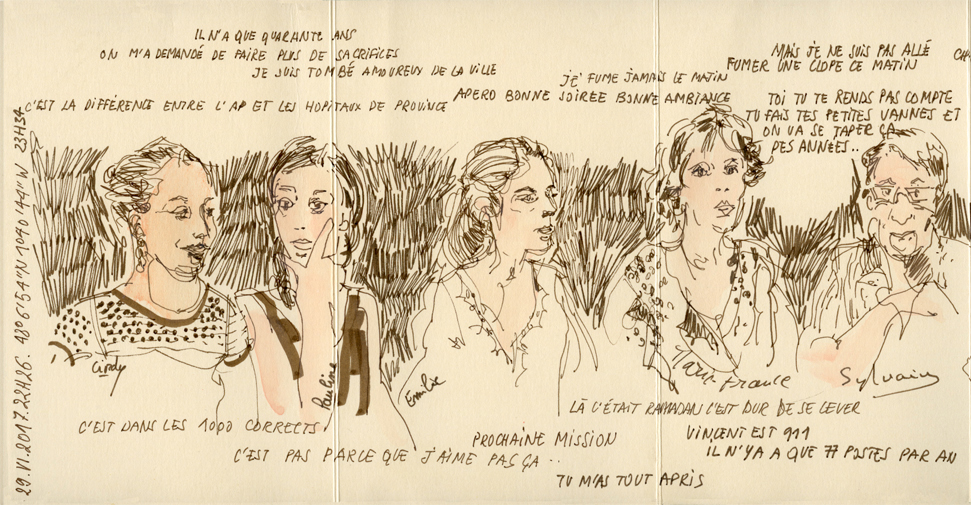 IL N'A QUE QUARANTE ANS
ON M'A DEMANDÉ DE FAIRE PLUS DE SACRIFICES
JE SUIS TOMBÉ AMOUREUX DE LA VILLE
C'EST LA DIFFÉRENCE ENTRE L'AP ET LES HOPITAUX DE PROVINCE
JE FUME JAMAIS LE MATIN
APERO BONNE SOIREE BONNE AMBIANCE
MAIS JE NE SUIS PAS ALLÉ
FUMER UNE CLOPE CE MATIN
TOI TU TE RENDS PAS COMPTE
TU FAIS TES PETITES VANNES ET
ON VA SE TAPER ÇA
DES ANNÉES..
29.VI.2017. 22H26.
23H37
Cindy
Pauline
Emilie
France
Sylvain
C'EST DANS LES 1000 CORRECTS
C'EST PAS PARCE QUE J'AIME PAS ÇA..
PROCHAINE MISSION
TU M'AS TOUT APRIS
LÀ C'ÉTAIT RAMADAN C'EST DUR DE SE LEVER
VINCENT EST 911
IL N'Y A QUE 77 POSTES PAR AN